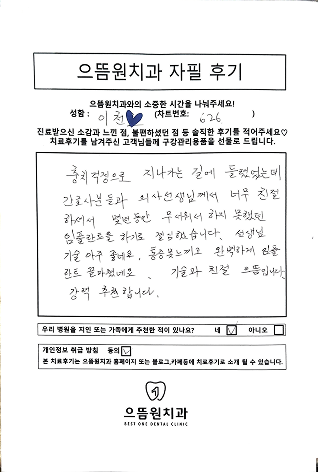 으뜸원치과 자필 후기
으뜸원치과와의 소중한 시간을 나눠주세요!
성함 : 이천 (차트번호: 626 )
진료받으신 소감과 느낀 점, 불편하셨던 점 등 솔직한 후기를 적어주세요♡
치료후기를 남겨주신 고객님께 구강관리용품을 선물로 드립니다.
충치걱정으로 지나가는 길에 들렀었는데
간호사분들과 의사선생님께서 너무 친절
하셔서 몇년동안 무서워서 하지 못했던
임플란트를 하기로 결심했습니다. 선생님
기술 아주 좋네요. 통증못느끼고 완벽하게 임플
란트 끝마쳤네요. 기술과 친절 으뜸입니다.
강력 추천합니다.
우리 병원을 지인 또는 가족에게 추천한 적이 있나요? 네 ☑ 아니오 □
개인정보 취급 방침 동의 ☑
본 치료후기는 으뜸원치과 홈페이지 또는 블로그,카페등에 치료후기로 소개 될 수 있습니다.
으뜸원치과
BEST ONE DENTAL CLINIC